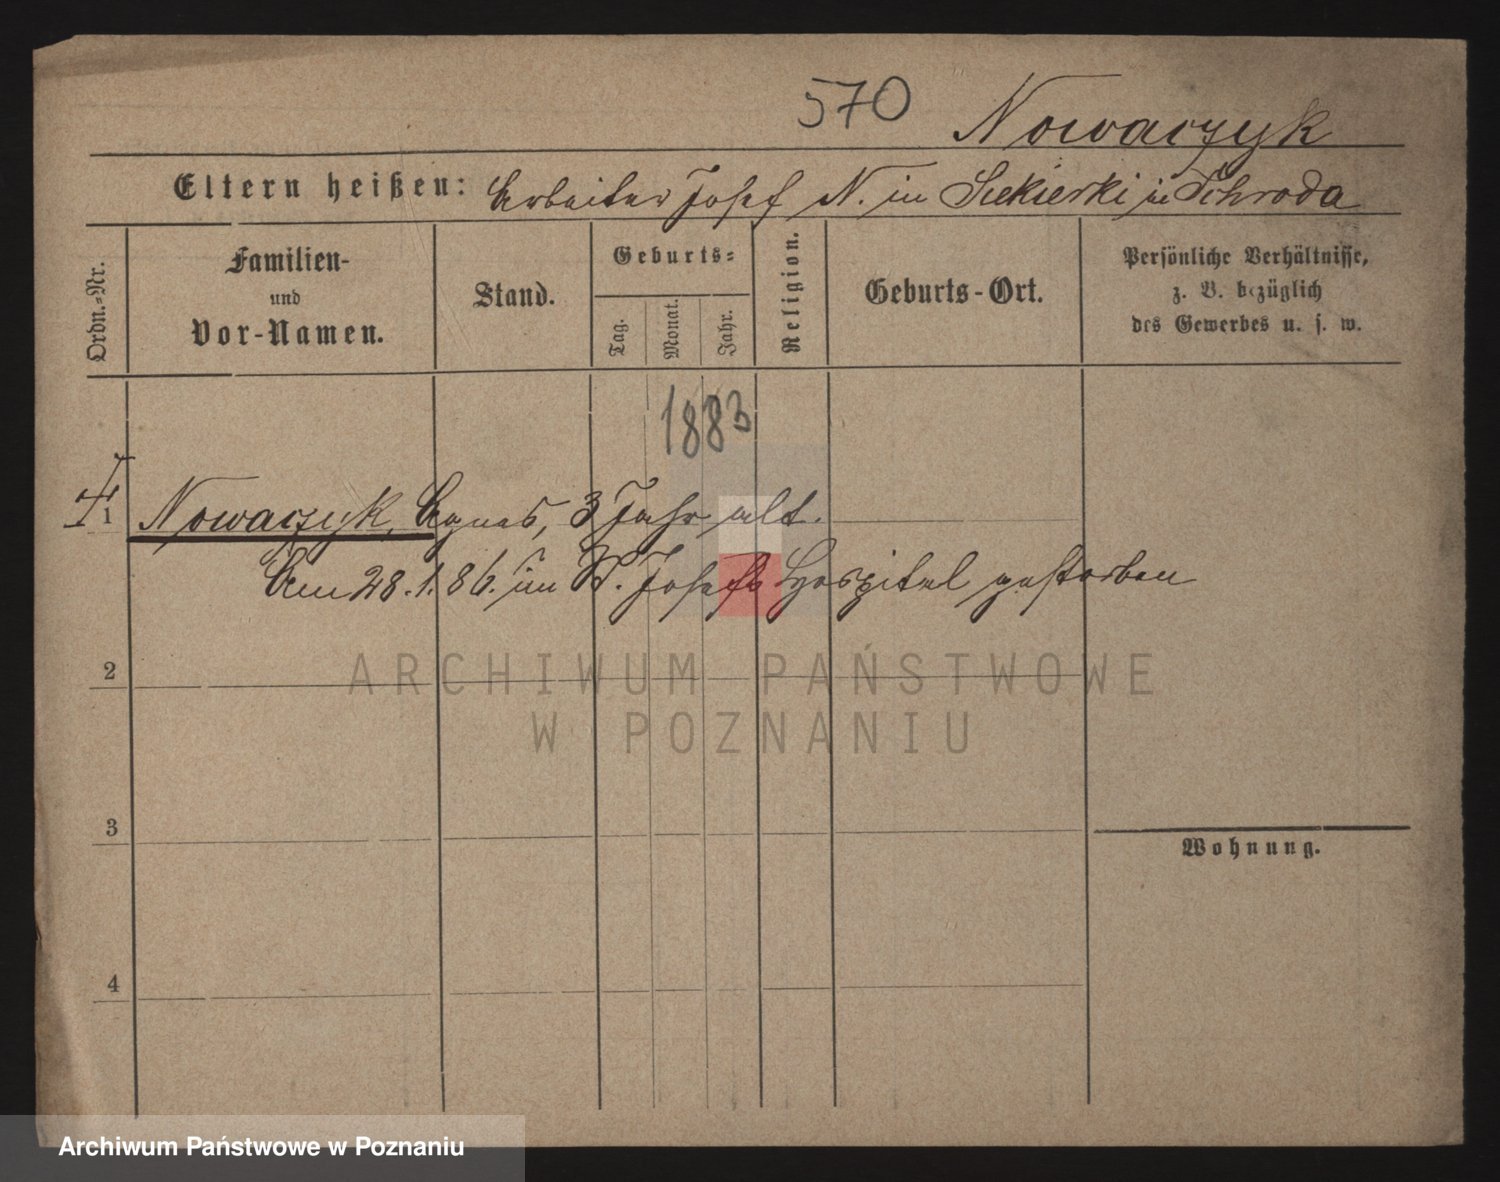 570 Nowaczyk
Eltern heißen: Arbeiter Josef N. in Siekierki in Schroda
Ordn.-Nr.
Familien-
und
Vor-Namen.
Stand.
Geburts-
Tag.
Monat.
Jahr.
Religion.
Geburts-Ort.
Persönliche Verhältnisse,
z. B. bezüglich
des Gewerbes u. s. w.
1883
1 Nowaczyk, Agnes, 3 Jahr alt.
Am 28.1.86. im St. Josefs Hospital gestorben
2
ARCHIWUM PAŃSTWOWE
W POZNANIU
3
Wohnung.
4
Archiwum Państwowe w Poznaniu